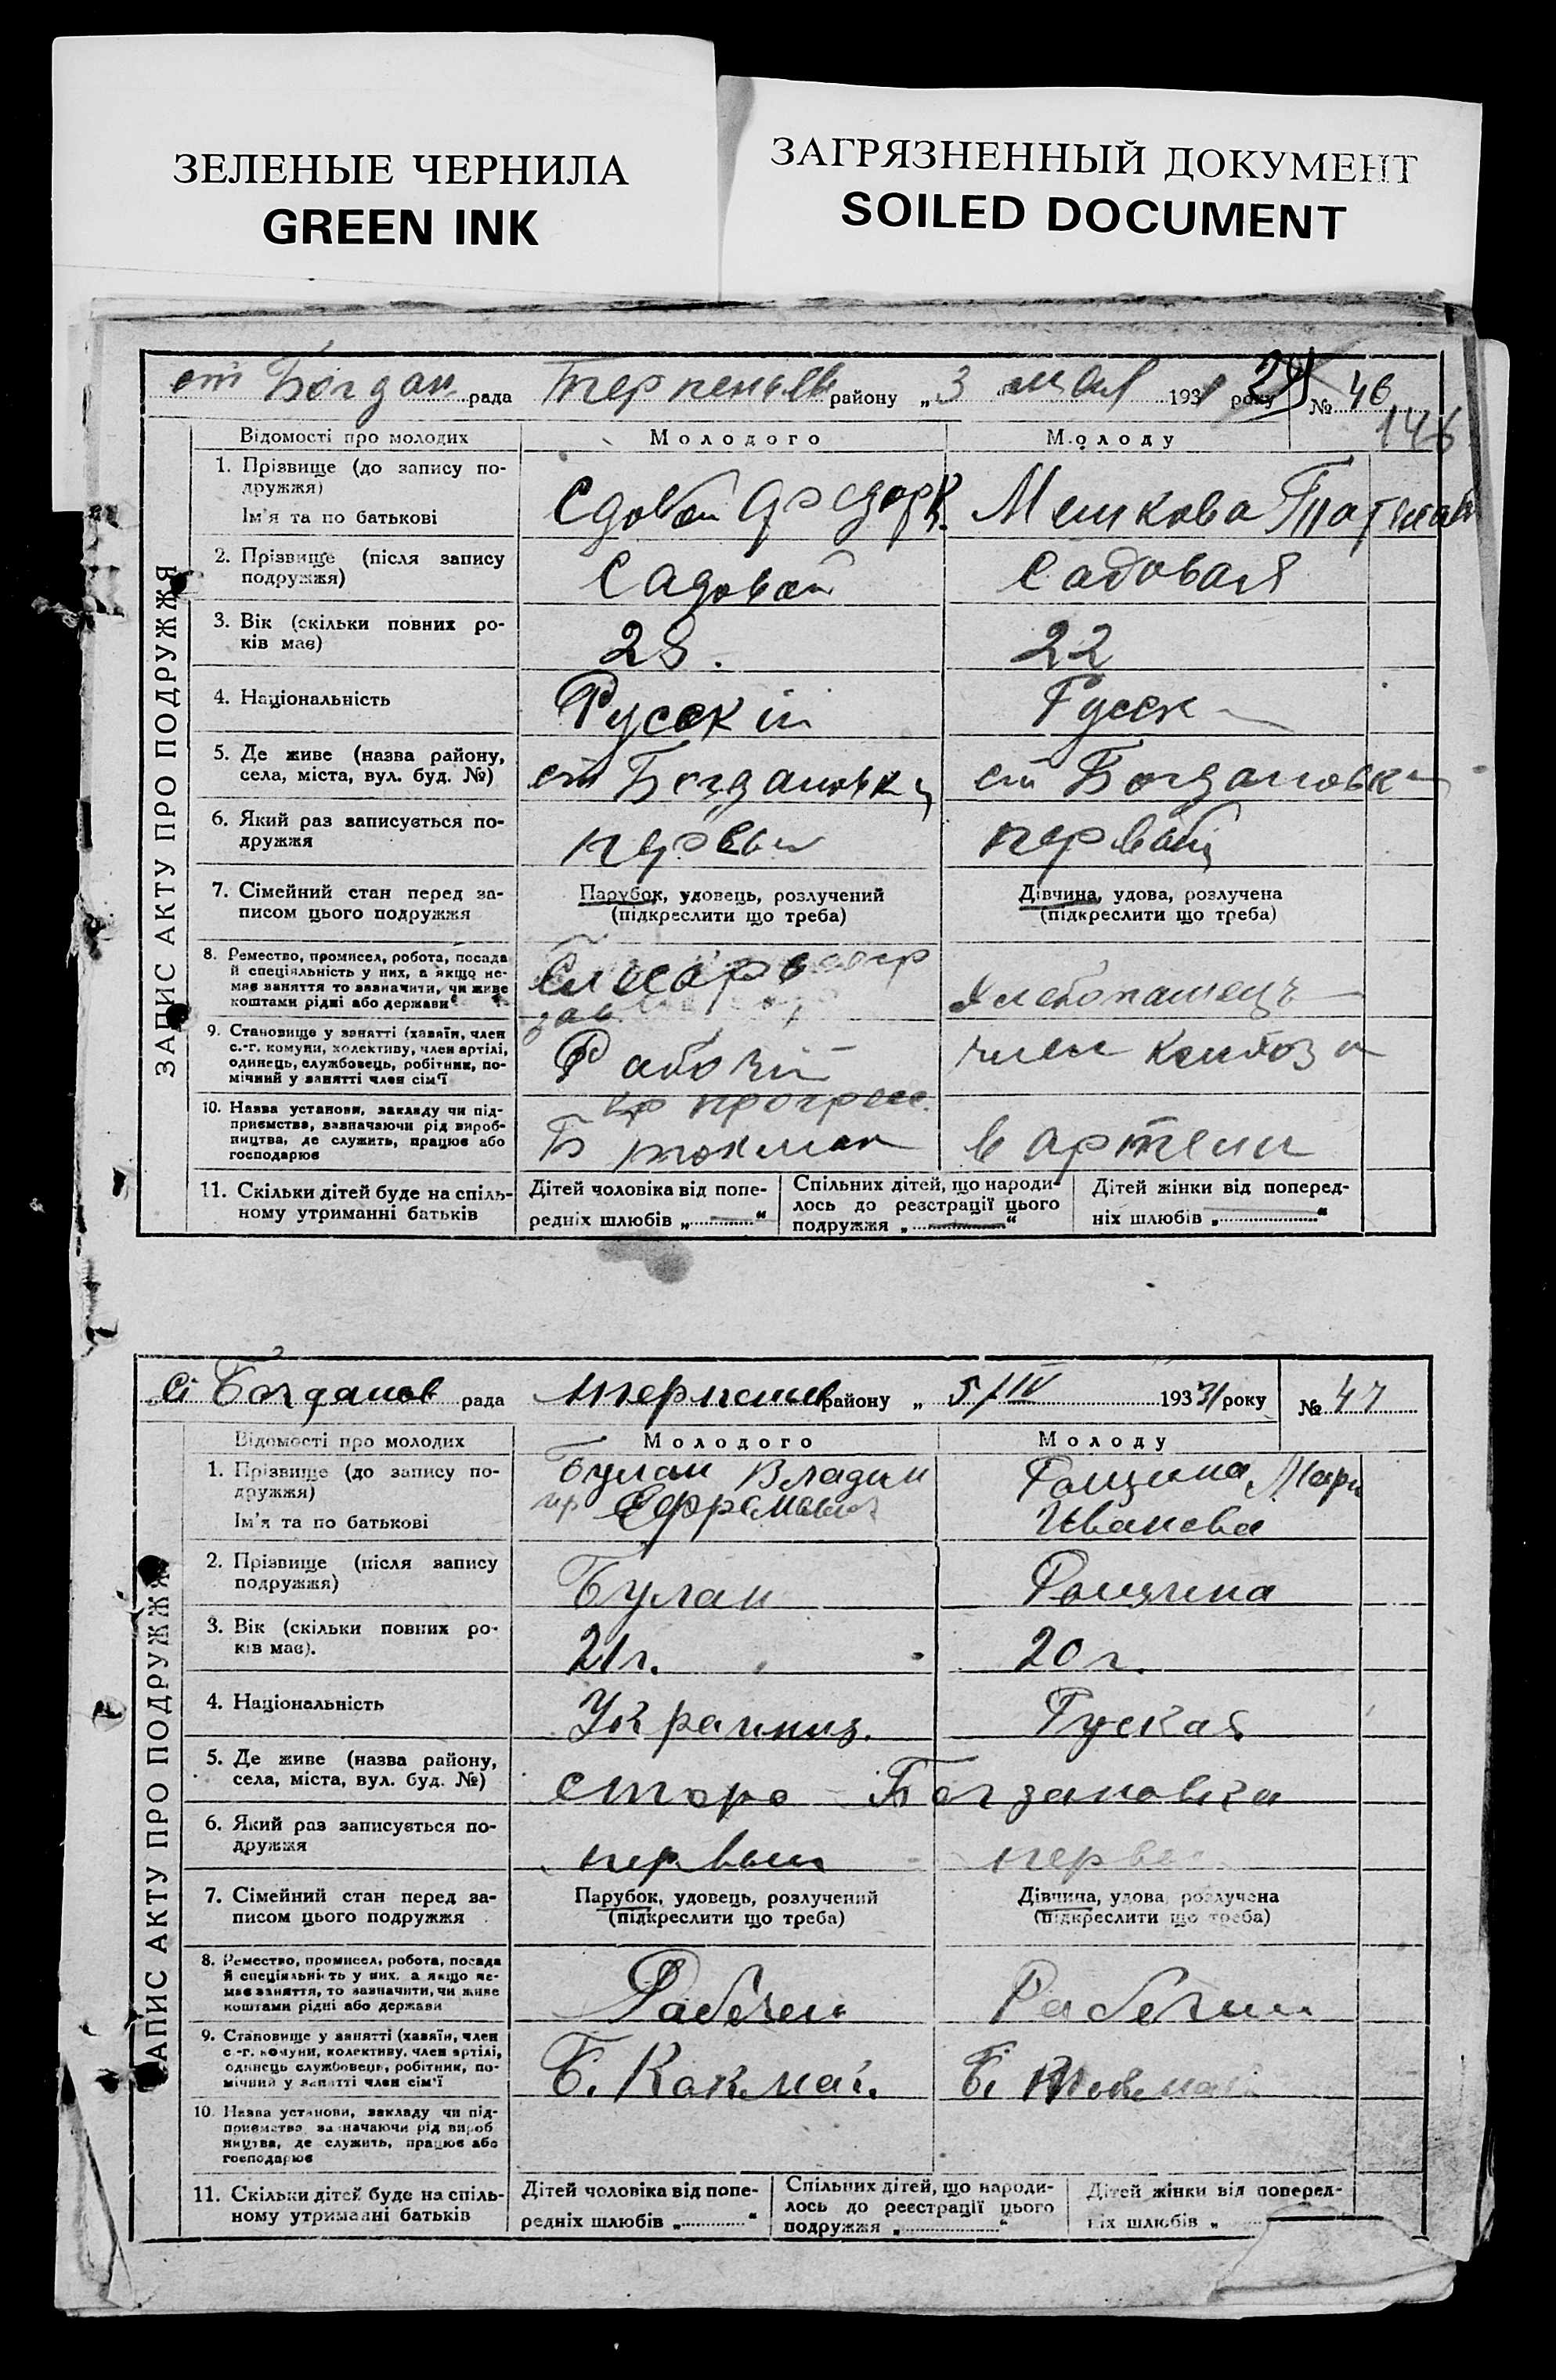 ЗЕЛЕНЫЕ ЧЕРНИЛА
GREEN INK
ЗАГРЯЗНЕННЫЙ ДОКУМЕНТ
SOILED DOCUMENT
ст Богдан рада Терпеньев району „3 193 року № 46
146
ЗАПИС АКТУ ПРО ПОДРУЖЖЯ
Відомості про молодих Молодого Молоду
1. Прізвище (до запису по-
дружжя)
Ім'я та по батькові
Мешкова
2. Прізвище (після запису
подружжя)
Садовой Садовая
3. Вік (скільки повних ро-
ків має)
28. 22
4. Національність Русский Русск
5. Де живе (назва району,
села, міста, вул. буд. №)
ст Богдановки ст Богдановк
6. Який раз записується по-
дружжя
первы первый
7. Сімейний стан перед за-
писом цього подружжя
Парубок, удовець, розлучений
(підкреслити що треба)
Дівчина, удова, розлучена
(підкреслити що треба)
8. Ремество, промисел, робота, посада
й спеціяльність у них, а якщо не-
має заняття то зазначити, чи живе
коштами рідні або держави
Слесарь
зав
хлебопашець
9. Становище у занятті (хазяїн, член
с.-г. комуни, колективу, член артілі,
одинець, службовець, робітник, по-
мічний у занятті член сім'ї
Рабочій член
10. Назва установи, закладу чи під-
приємства, зазначаючи рід вироб-
ництва, де служить, працює або
господарює
прогресс
Б токмак в артели
11. Скільки дітей буде на спіль-
ному утриманні батьків
Дітей чоловіка від попе-
редніх шлюбів „ “
Спільних дітей, що народи-
лось до реєстрації цього
подружжя „ “
Дітей жінки від поперед-
ніх шлюбів „ “
ст Богданов рада терпение району „ 5/IV 1931 року № 47
ЗАПИС АКТУ ПРО ПОДРУЖЖЯ
Відомості про молодих Молодого Молоду
1. Прізвище (до запису по-
дружжя)
Ім'я та по батькові
Булан Владим
ир
Рощина Мари
Ивановна
2. Прізвище (після запису
подружжя)
Булан Рощина
3. Вік (скільки повних ро-
ків має).
21 г. 20 г.
4. Національність Украиниц. Руская
5. Де живе (назва району,
села, міста, вул. буд. №)
старо Богдановка
6. Який раз записується по-
дружжя
первый
7. Сімейний стан перед за-
писом цього подружжя
Парубок, удовець, розлучений
(підкреслити що треба)
Дівчина, удова, розлучена
(підкреслити що треба)
8. Ремество, промисел, робота, посада
й спеціяльність у них. а якщо не-
має заняття, то зазначити, чи живе
коштами рідні або держави
9. Становище у занятті (хазяїн, член
с.-г. комуни, колективу, член артілі,
одинець службовець, робітник, по-
мічний у занятті член сім'ї
10. Назва установи, закладу чи під-
приємства зазначаючи рід вироб
ництва, де служить, працює або
господарює
11. Скільки дітей буде на спіль-
ному утриманні батьків
Дітей чоловіка від попе-
редніх шлюбів „ “
Спільних дітей, що народи-
лось до реєстрації цього
подружжя „ “
Дітей жінки від поперед-
ніх шлюбів „